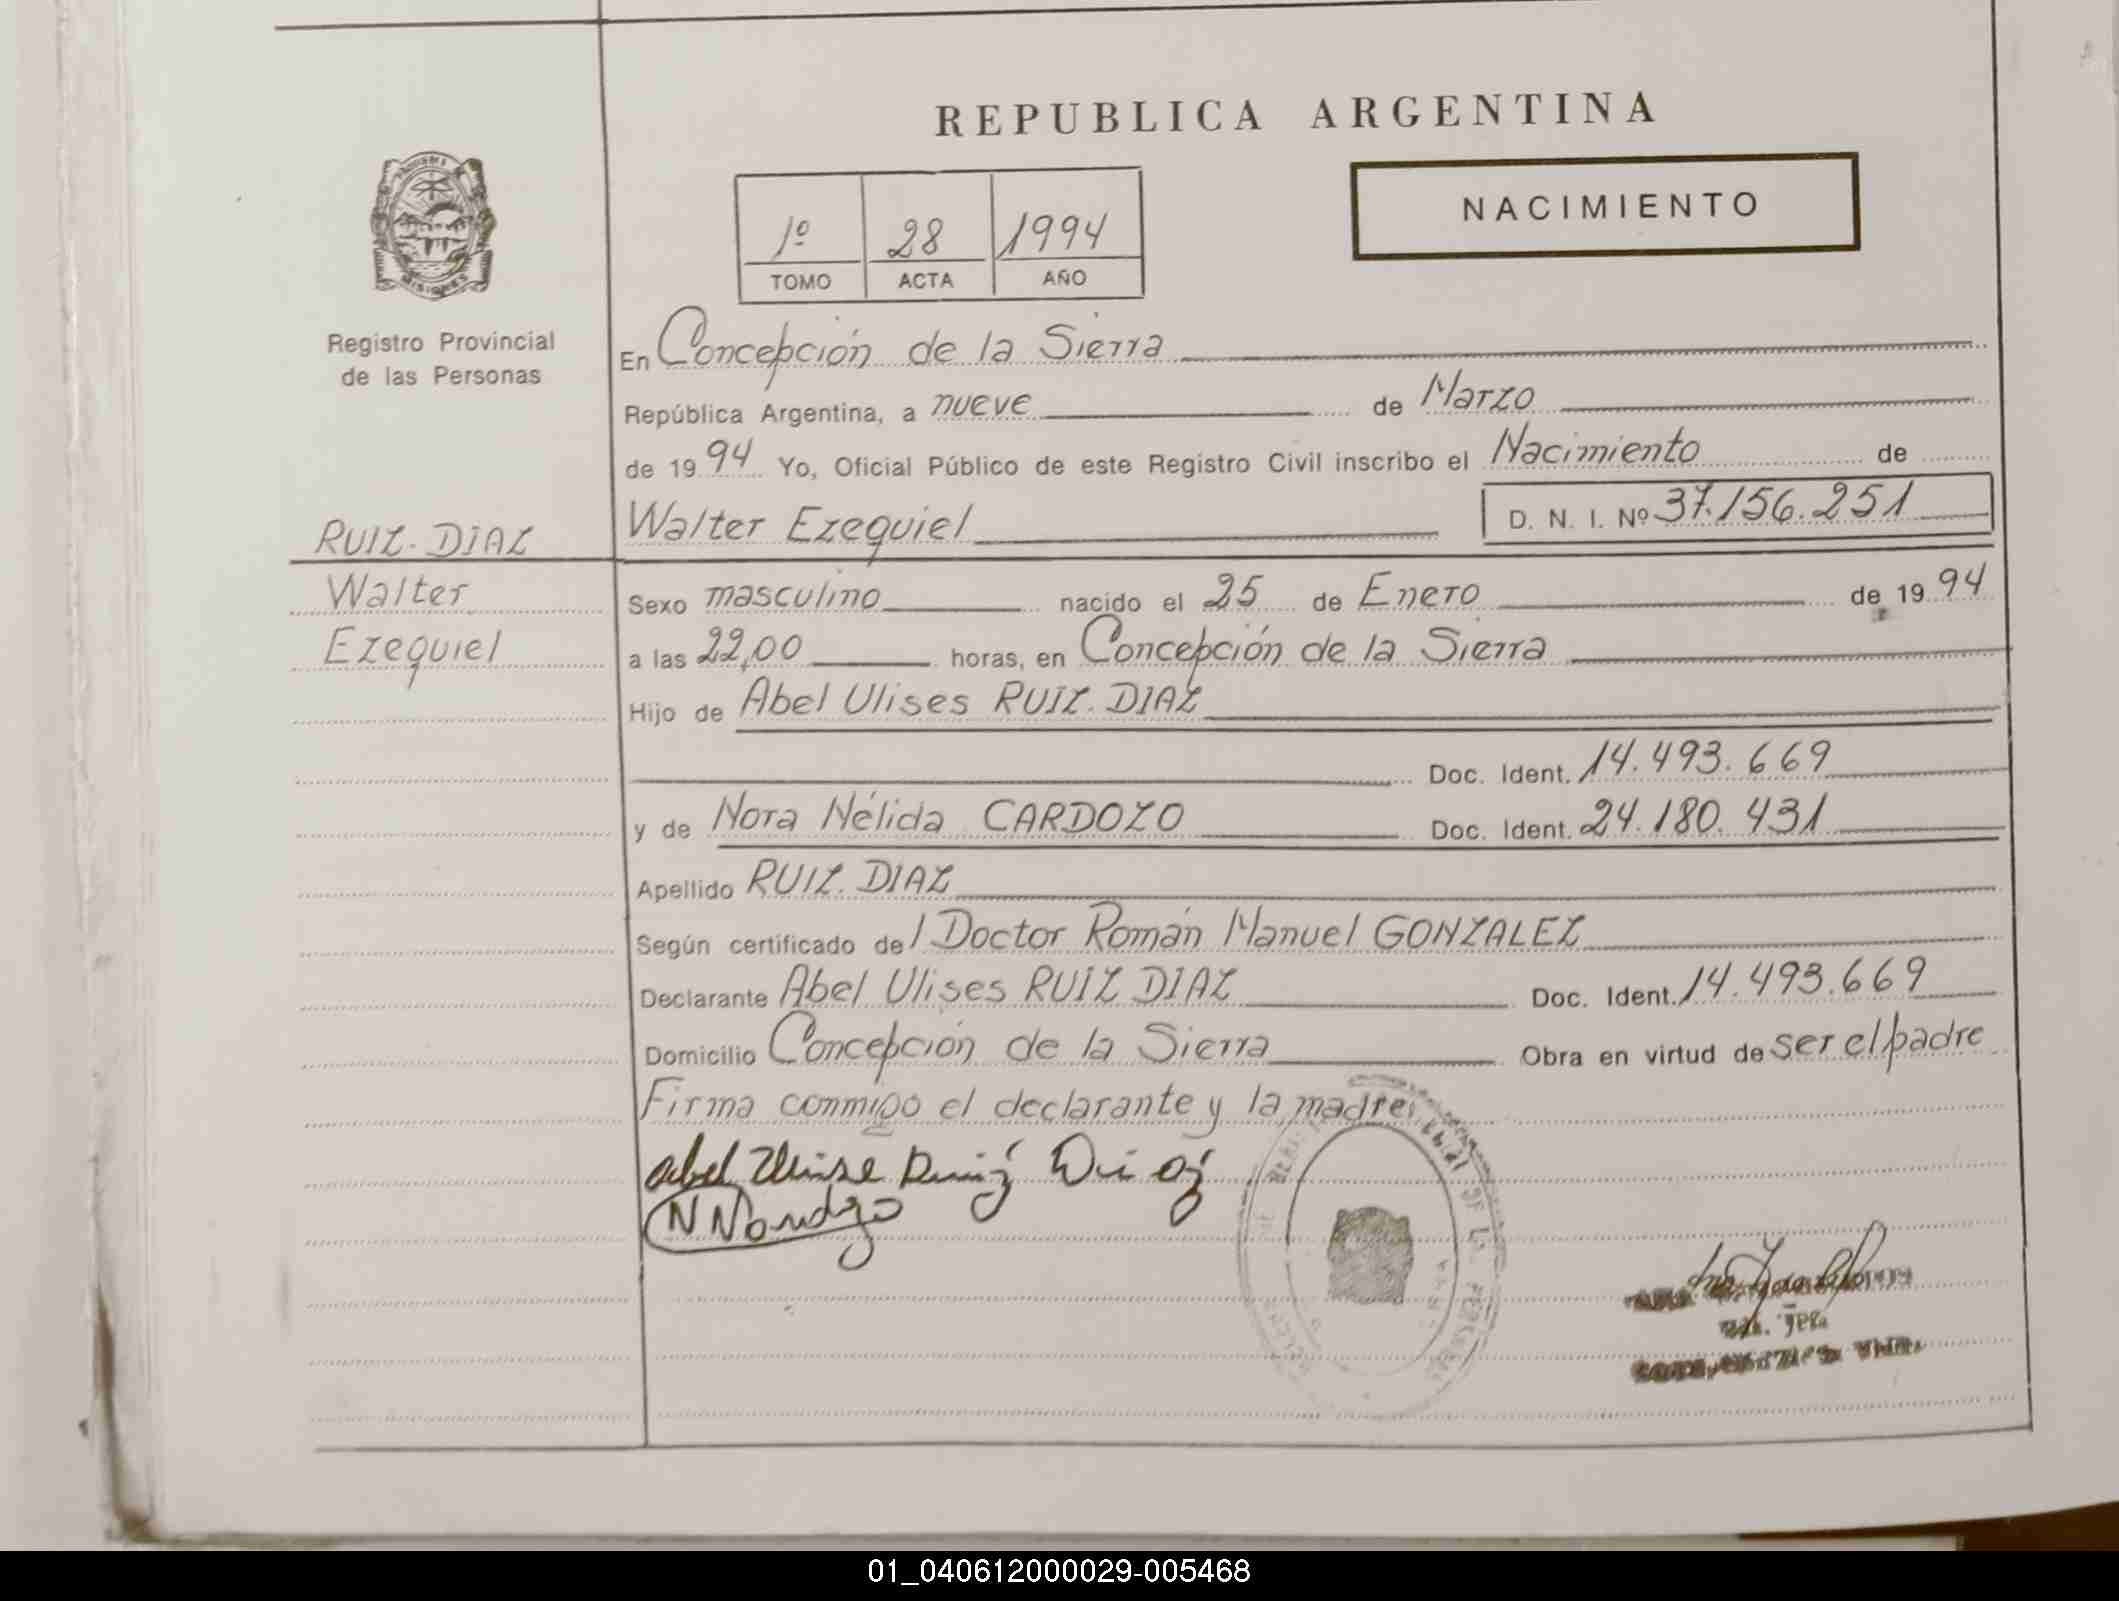 REPUBLICA ARGENTINA
NACIMIENTO
1º 28 1994
TOMO ACTA AÑO
MISIONES
Registro Provincial
de las Personas
En Concepción de la Sierra
República Argentina, a nueve de Marzo
de 1994 Yo, Oficial Público de este Registro Civil inscribo el Nacimiento de
Walter Ezequiel D. N. I. Nº 37.156.251
RUIZ. DIAZ
Walter
Ezequiel
Sexo masculino nacido el 25 de Enero de 1994
a las 22,00 horas, en Concepción de la Sierra
Hijo de Abel Ulises RUIZ. DIAZ
Doc. Ident. 14.493.669
y de Nora Nélida CARDOZO Doc. Ident. 24.180.431
Apellido RUIZ. DIAZ
Según certificado del Doctor Román Manuel GONZALEZ
Declarante Abel Ulises RUIZ DIAZ Doc. Ident. 14.493.669
Domicilio Concepción de la Sierra Obra en virtud de ser el padre
Firma conmigo el declarante y la madre
01_040612000029-005468